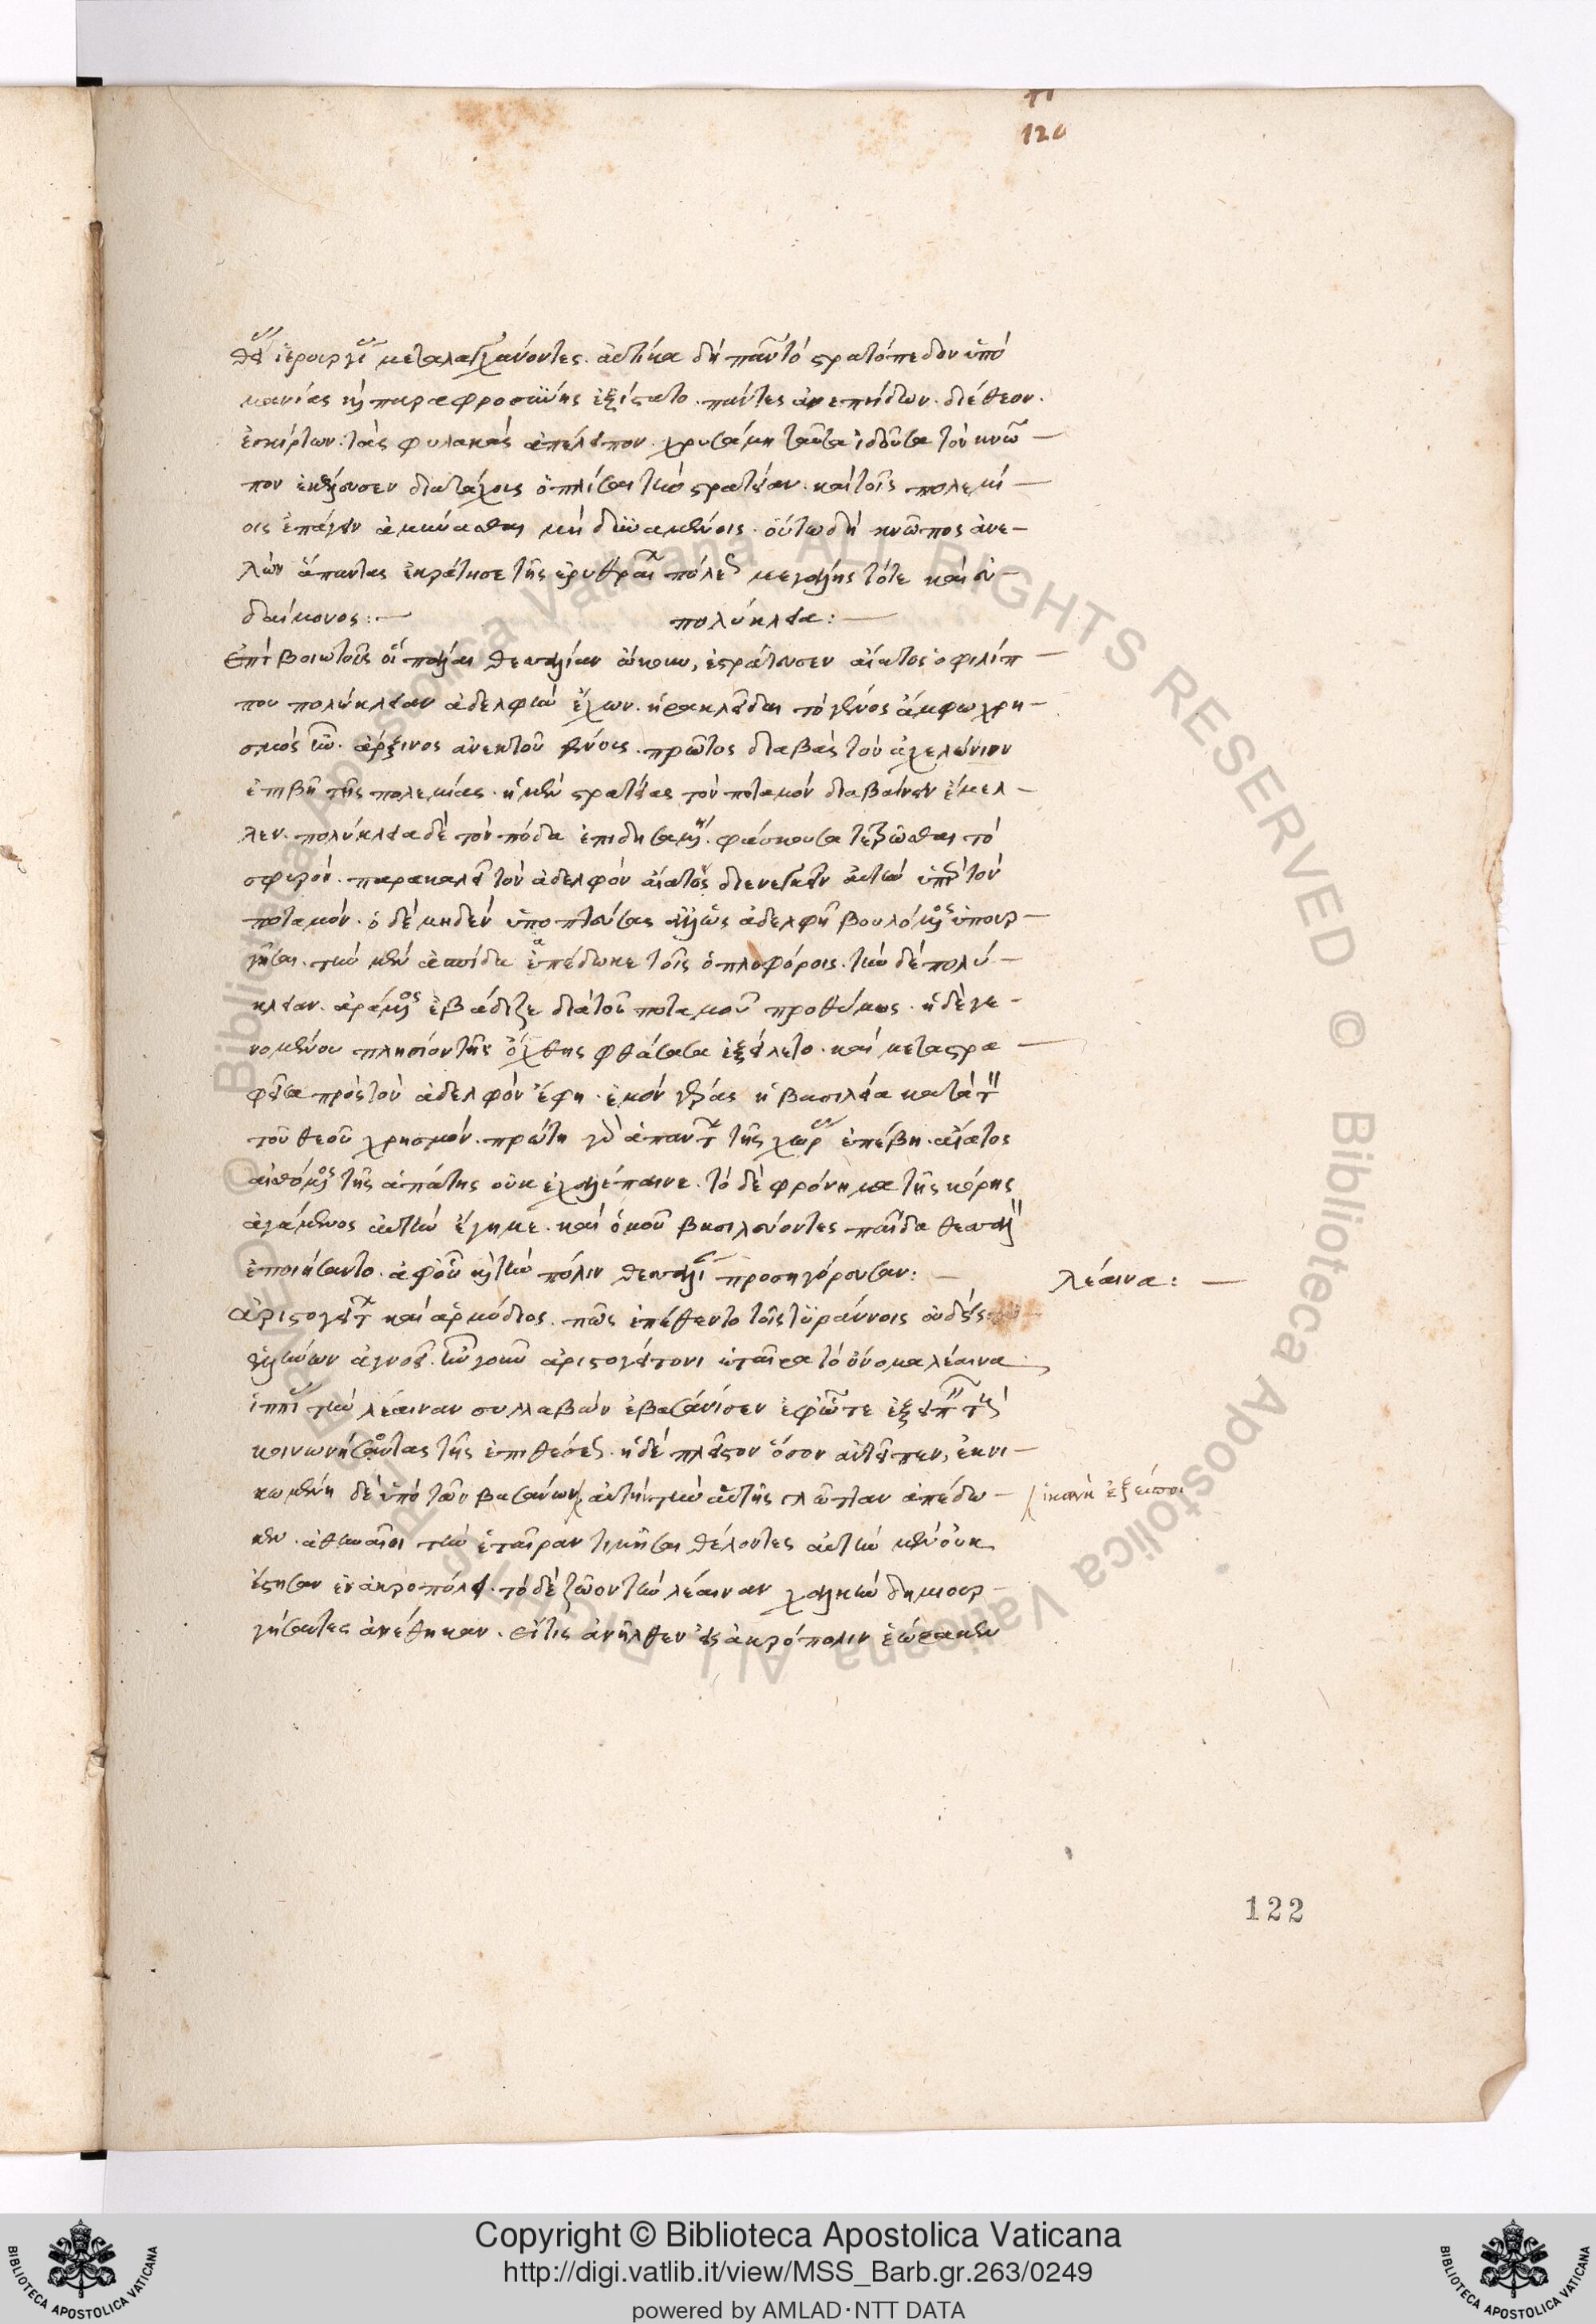 120
θείας ἱερουργίας μεταλαγχάνοντες. αὐτίκα δὴ πᾶν τὸ στρατόπεδον ὑπὸ
μανίας καὶ παραφροσύνης ἐξίστατο. πάντες ἀνεπήδων. διέθεον.
ἐσκίρτων. τὰς φυλακὰς ἀπέλειπον. χρυσάμη ταῦτα ἰδοῦσα τὸν κνῶ
πον ἐκέλευσεν διατάχους ὁπλίσαι τὴν στρατείαν. καὶ τοῖς πολεμί
οις ἐπάγειν ἀμύνασθαι μὴ δυναμένοις. οὕτω δὴ κνῶπος ἀνε
λὼν ἅπαντας ἐκράτησε τῆς ἐρυθραίων πόλεως μεγάλης τότε καὶ εὐ
δαίμονος:
πολύκλεια:
ἐπὶ βοιωτοῖς οἳ πάλαι θεσσαλίαν ᾤκουν, ἐστράτευσεν αἴατος ὁ φιλίπ
που πολύκλειαν ἀδελφὴν ἔχων. ἡρακλεῖδαι τὸ γένος ἄμφω χρη
σμὸς ἦν. ἄρξειν ὃς ἂν ἐκ τοῦ γένους. πρῶτος διαβὰς τὸν ἀχελώιον
ἐπιβῇ τῆς πολεμίας. ἡ μὲν στρατείας τὸν ποταμὸν διαβαίνειν ἔμελ
λεν. πολύκλεια δὲ τὸν πόδα ἐπιδησαμένη. φάσκουσα τετρῶσθαι τὸ
σφυρόν. παρακαλεῖ τὸν ἀδελφὸν αἴατος διενεγκεῖν αὐτὴν ὑπὲρ τὸν
ποταμόν. ὁ δὲ μηδὲν ὑποπτεύσας ἀλλ' ὡς ἀδελφῇ βουλόμενος ὑπουρ
γῆσαι. τὴν μὲν ἀσπίδα ἀπέδωκε τοῖς ὁπλοφόροις. τὴν δὲ πολύ
κλειαν. ἀράμενος ἐβάδιζε διὰ τοῦ ποταμοῦ προθύμως. ἡ δὲ γε
νομένου πλησίον τῆς ὄχθης φθάσασα ἐξείλετο. καὶ μεταστρα
φεῖσα πρὸς τὸν ἀδελφὸν ἔφη. ἐμὸν γέρας ἡ βασιλεία κατὰ τὸν
τοῦ θεοῦ χρησμόν. πρώτη γὰρ ἁπάντων τῆς χώρας ἐπέβη. αἴατος
αἰσθόμενος τῆς ἀπάτης οὐκ ἐχαλέπαινε. τὸ δὲ φρόνημα τῆς κόρης
ἀγάμενος αὐτὴν ἔγημε. καὶ ὁμοῦ βασιλεύοντες παῖδα θεσσαλὸν
ἐποιήσαντο. ἀφ' οὗ καὶ τὴν πόλιν θεσσαλίαν προσηγόρευσαν:
λέαινα:
ἀριστογείτων καὶ ἁρμόδιος. πῶς ἐπέθεντο τοῖς τυράννοις οὐδεὶς
ἑλλήνων ἀγνοεῖ. ἦν γοῦν ἀριστογείτονι ἑταῖρα τὸ ὄνομα λέαινα
ἱππίας τὴν λέαιναν συλλαβὼν ἐβασάνισεν ἐφ' ᾧτε ἐξειπεῖν τοὺς
κοινωνήσαντας τῆς ἐπιθέσεως. ἡ δὲ πλεῖστον ὅσον ἀντεῖπεν, ἐκνι
κωμένη δὲ ὑπὸ τῶν βασάνων αὐτὴ τὴν αὐτῆς γλῶτταν ἀπέδω
ἱκανὴ ἐξείποι
κεν. ἀθηναῖοι τὴν ἑταῖραν τιμῆσαι θέλοντες αὐτὴν μὲν οὐκ
ἔστησαν ἐν ἀκροπόλει. τὸ δὲ ζῶον τὴν λέαιναν χαλκὴν δημιουρ
γήσαντες ἀνέθηκαν. εἴ τις ἀνῆλθεν εἰς ἀκρόπολιν ἑώρακεν
122
Copyright © Biblioteca Apostolica Vaticana
http://digi.vatlib.it/view/MSS_Barb.gr.263/0249
powered by AMLAD·NTT DATA